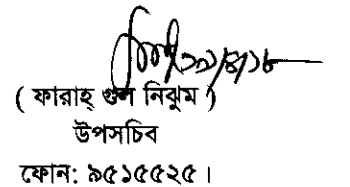 ২৯/৪/১৮
( ফারাহ্ গুল নিঝুম )
উপসচিব
ফোন: ৯৫১৫৫২৫।